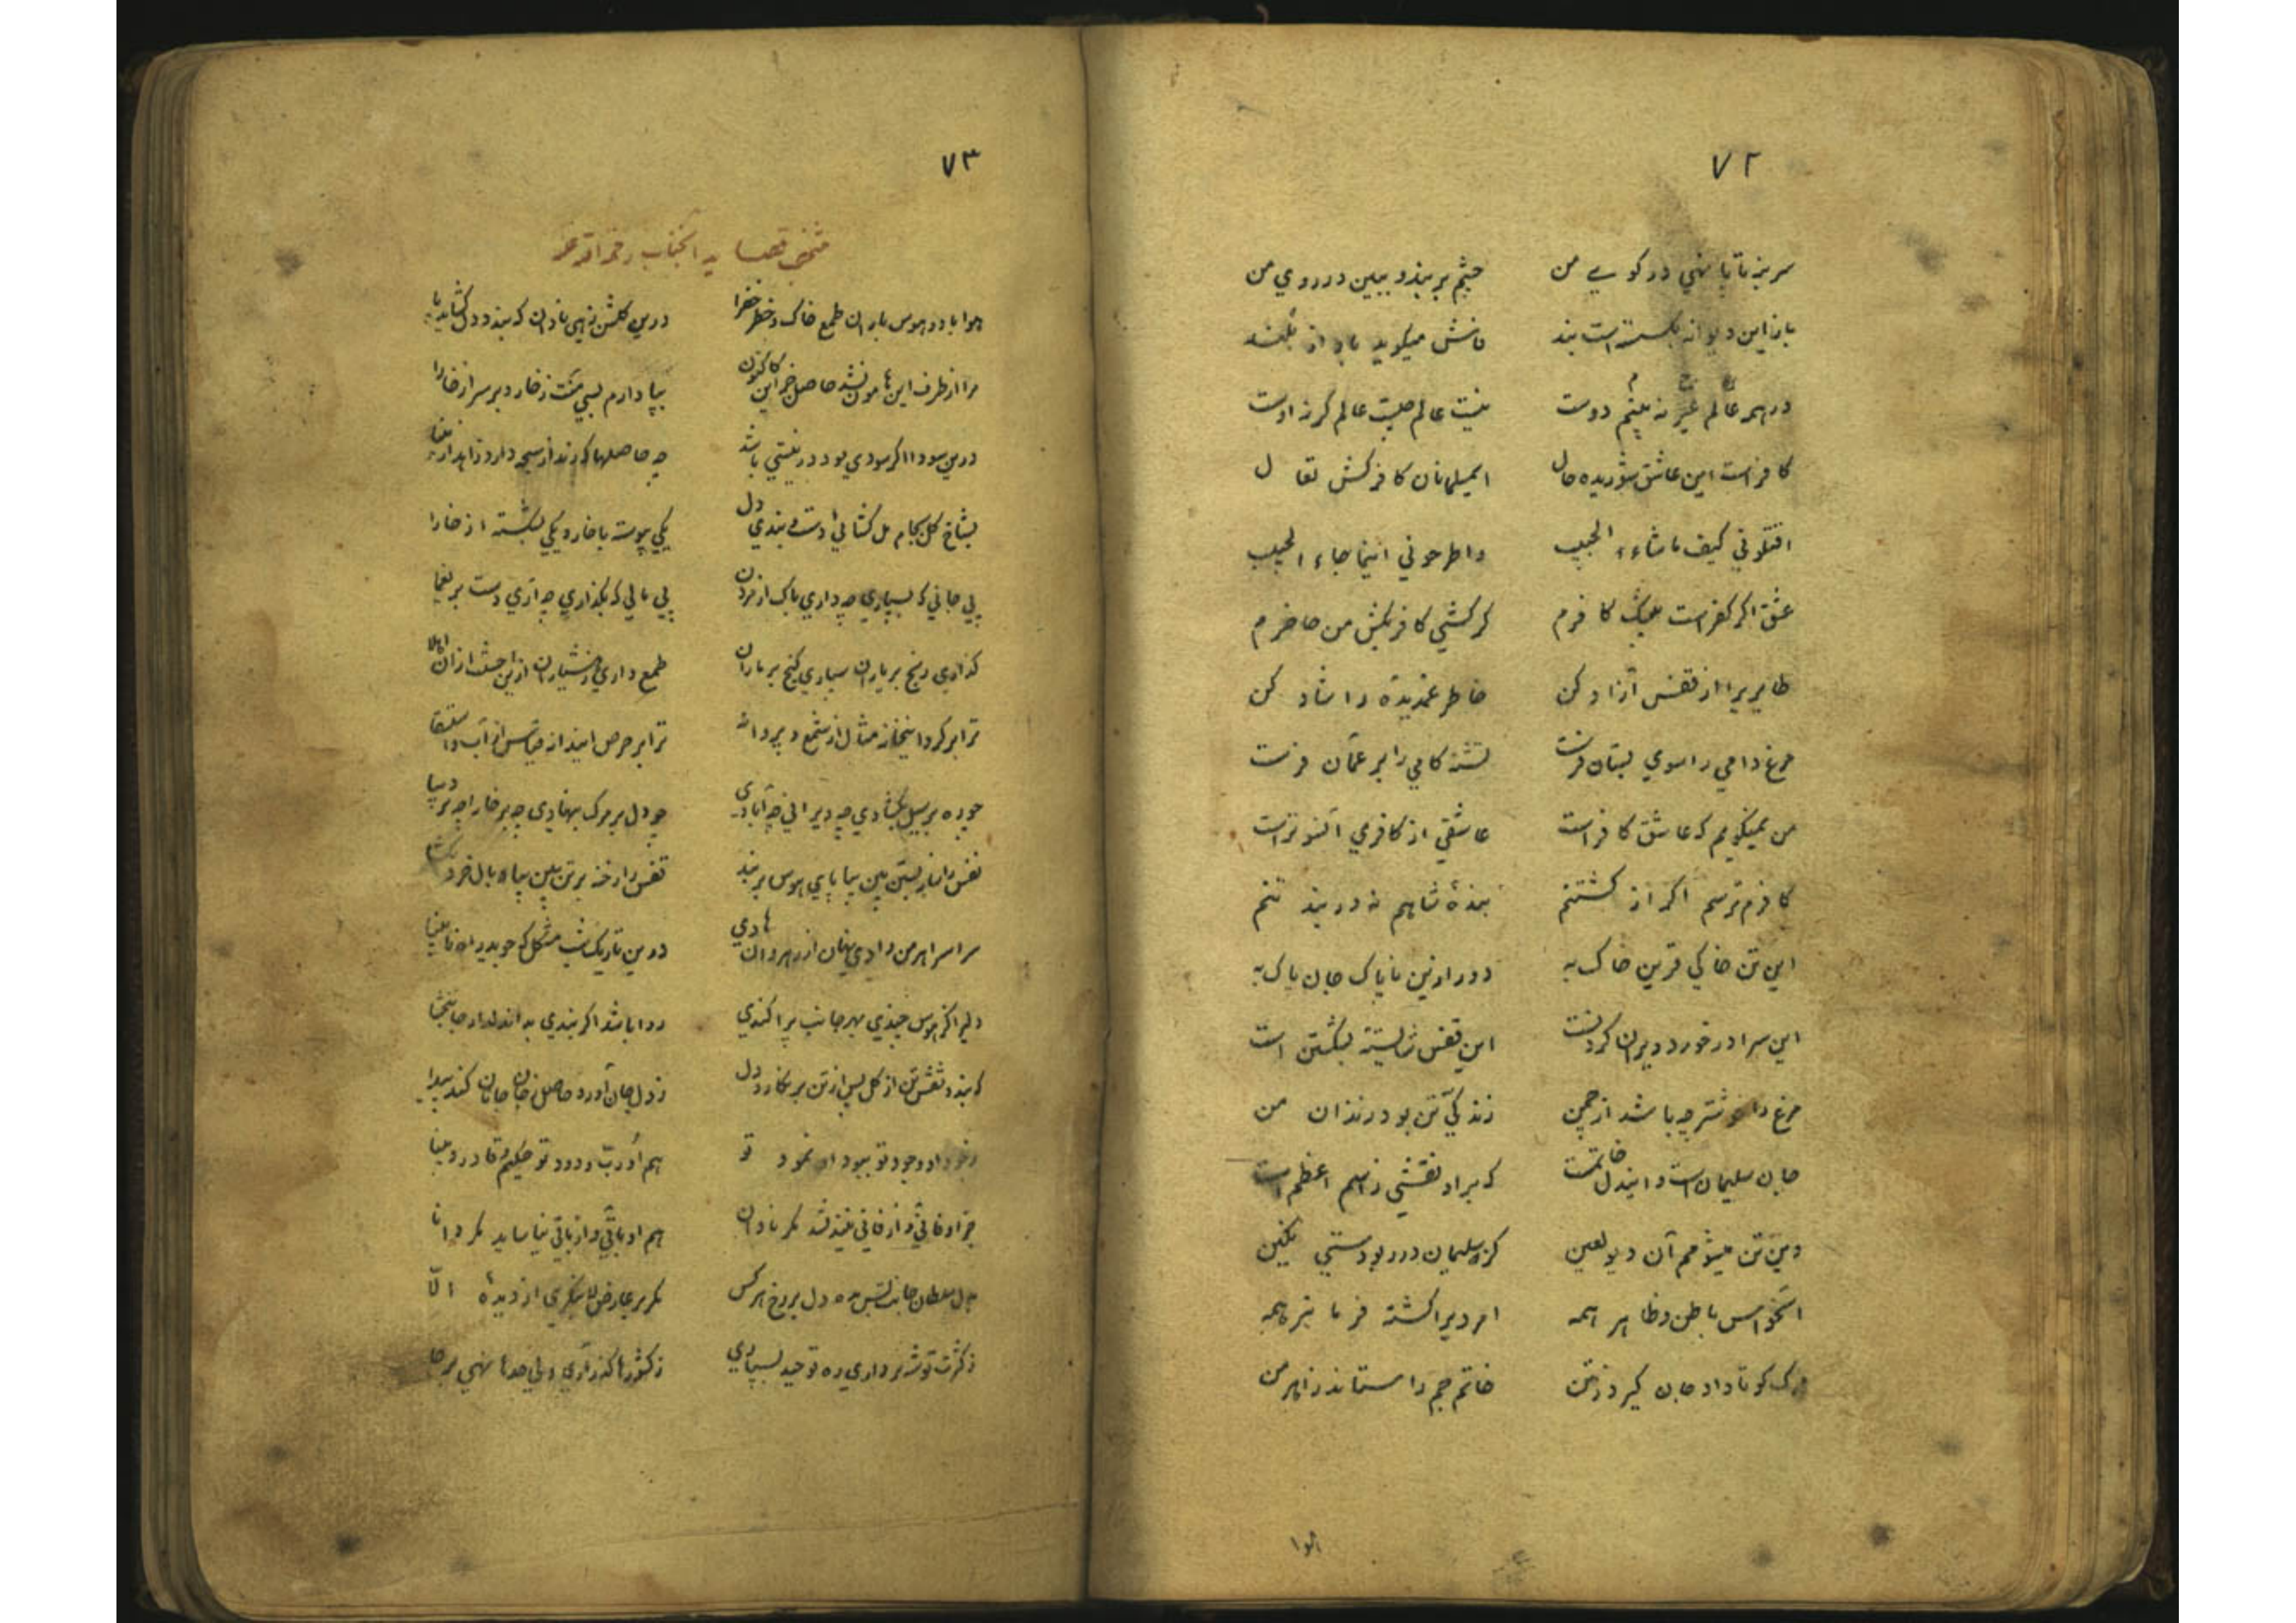 ٧٢
سر بنه تا پا نهی در کوی من چشم بربند و ببین در روی من
باز این دیوانه بگسسته است بند فاش میگوید به آواز بلند
در همه عالم غیر نه بینم دوست نیست عالم چیست عالم گرنه اوست
کافر است این عاشق شوریده حال ایمسلمانان کافرکش تعال
اقتلونی کیف ما شاء الحبیب واطرحونی اینما جاء الحبیب
عشق اگر کفر است بیشک کافرم گر کشی کافر بکش من حاضرم
طایریرا از قفس آزاد کن خاطر غمدیدهٔ را شاد کن
مرغ دامی را سوی بستان فرست تشنه کامی را بر عمّان فرست
من نمیگویم که عاشق کافر است عاشقی از کافری آنسوتر است
کافرم ترسم اگر از کشتنم بندهٔ شاهم نه در بند تنم
این تن خاکی قرین خاک به دور ازین ناپاک جان پاک به
این سرا در خورد ویران کردنست این قفس شایستهٔ بشکستن است
مرغ را خوشتر چه باشد از چمن زندگیّ تن بود زندان من
جان سلیمان است و ایندل خاتمست که بر او نقشی ز اسم اعظم است
وین تن میشوم آن دیو لعین کز سلیمان در ربودستی نگین
استخواس باطن و ظاهر همه امر دیو را گشته فرمانبر همه
مرگ کو تا داد جان گیرد ز تن خاتم جم را ستاند ز اهرمن
هوا
٧٣
منتخب قصاید آنجناب رحمه الله
هوا باد و هوس باران طمع خاک و خطر خضرا درین گلشن زهی نادان که بندد دل گشاید پا
مرا از طرف این هامون نشد حاصل جز این کاکنون بپا دارم بسی منّت ز خار و بر سر از خارا
درین سودا اگر سودی بود در نیستی باشد چه حاصلها که رند از سیحه دارد زاهد از یغما
بشاخ گل بجام مل گشائی دست و بندی دل یکی پیوسته با خار و یکی بشکسته از خارا
پی جانی که بسپاری چه داری باک از مردن پی مالی که بگذاری چه آری دست بر یغما
گذاری رنج بر یاران سپاری گنج بر ماران طمع داری و هشیاران ازین احسنت از آن اهلا
ترا بر کرد اینخانه مثال از شمع و پروانه ترا بر حرص این دانه قیاس از آب و استسقا
چو ره بر سیل بگشادی چه ویرانی چه آبادی چو دل بر مرگ بنهادی چه بر خارا چه بر دیبا
نفس را نابربستن بین بیا پای هوس بربند قفس را رخنه بر تن بین بیا و بال خرد بگشا
سراسر اهرمن وادی نهان از رهروان هادی درین تاریک شب مشکل که جوید راه نابینا
دلیرا کز هوس چندی بهر جانب پراکندی روا باشد اگر بندی به اندلدار جان بخشا
که بندد نقش تن از گل پس از تن بر نگارد دل ز دل جان آورد حاصل ز جان جانان کند پیدا
ز جود او وجود تو ببود او نمود تو هم او ربّ ودود تو حکیم و قادر و بینا
جز او فانی و از فانی نیندیشد مگر نادان هم او باقی و از باقی نیاساید مگر دانا
بدل سلطان جانت بس مده دل بر رخ هر کس مگر بر عارض لا ننگری از دیدهٔ الّا
ز کثرت توشه برداری ره توحید بسپاری ز کشورها گذر آری ولی حدها نهی بر جا